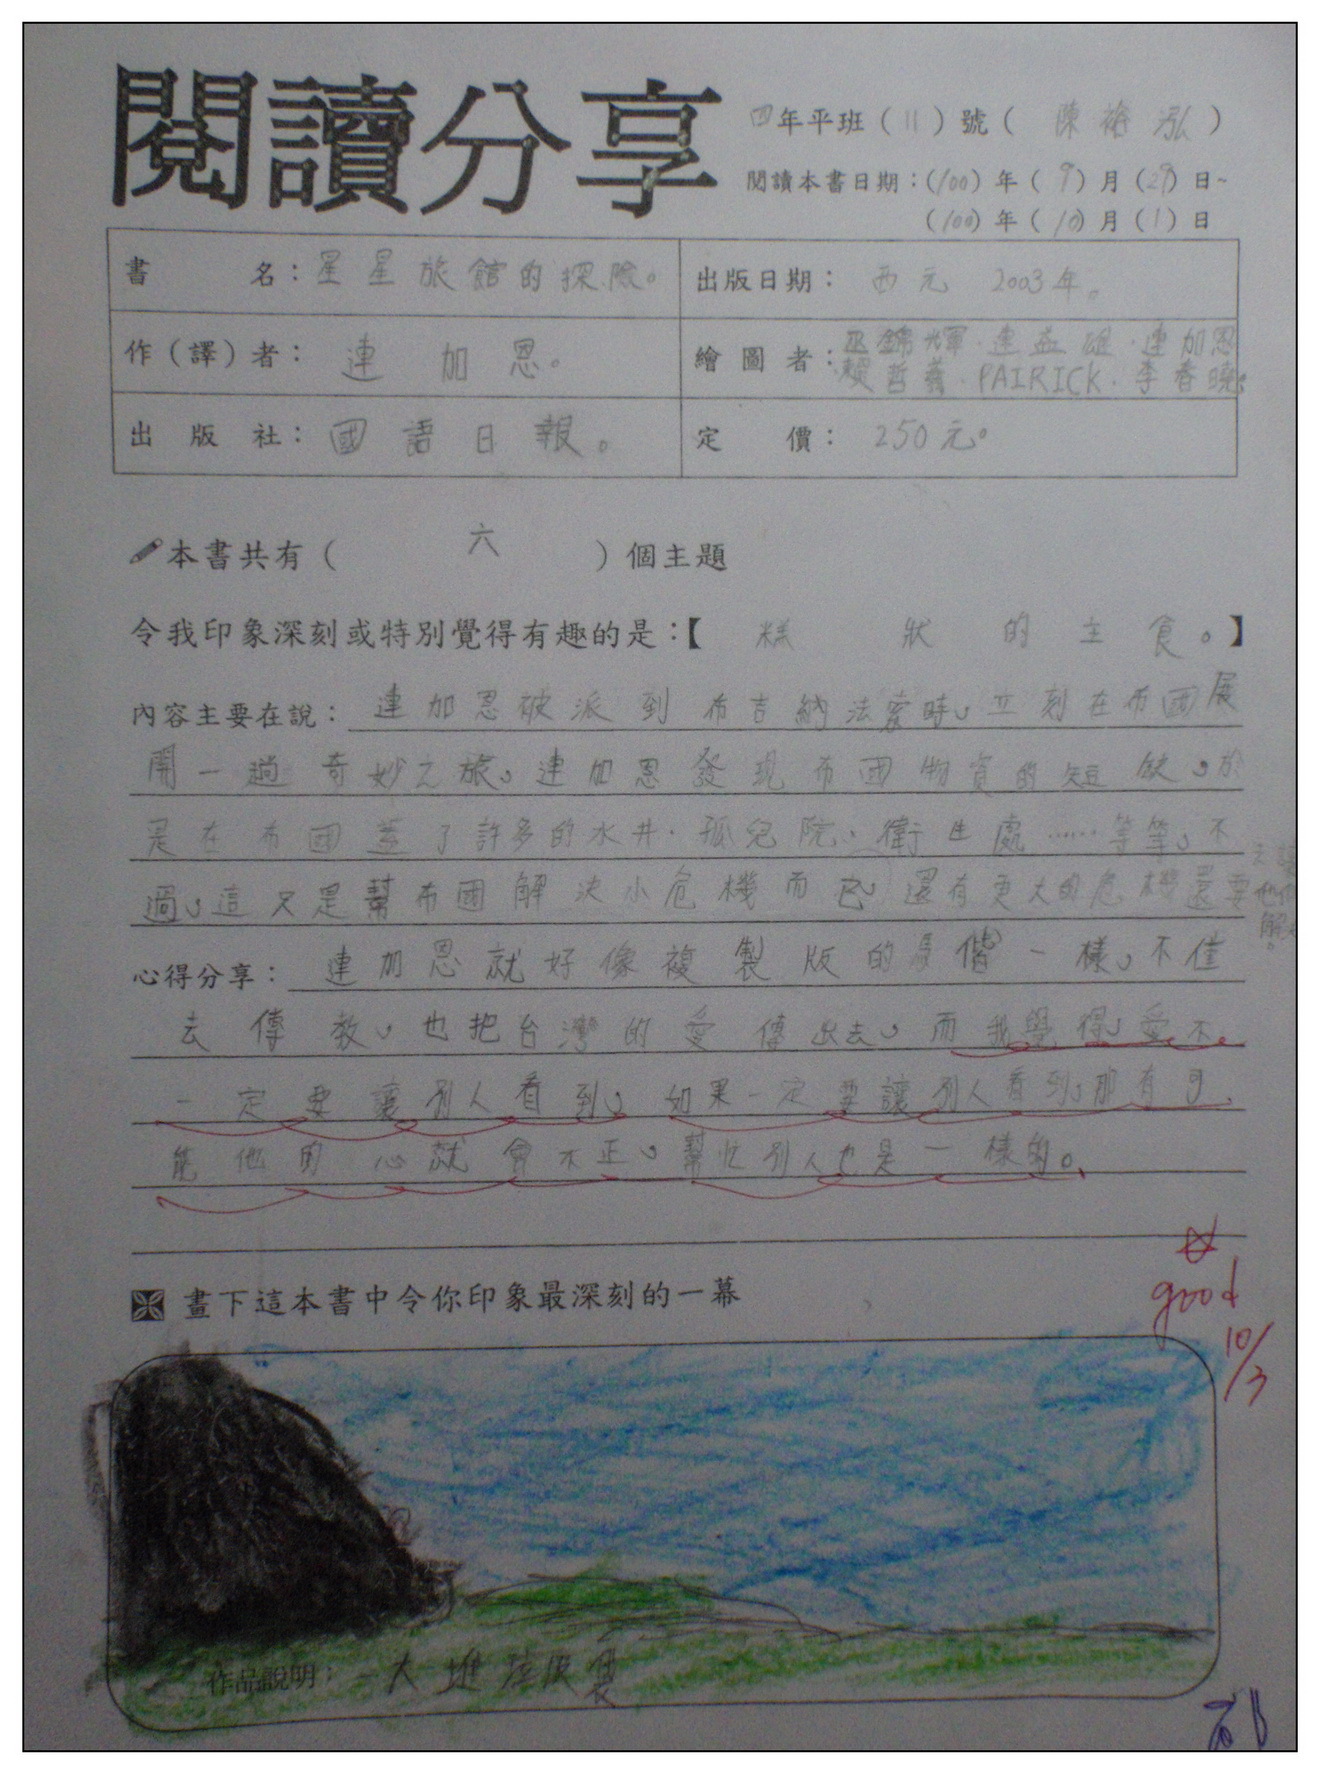 閱讀分享
四年平班（11）號（陳裕泓）
閱讀本書日期：(100) 年（9）月（29）日~
(100) 年（10）月（1）日
書名：星星旅館的探險。
出版日期：西元 2003年。
作（譯）者：連加恩。
繪圖者：巫錦輝·連益雄·連加恩
賴哲義·PAIRICK·李春曉。
出版社：國語日報。
定價：250元。
本書共有（六）個主題
令我印象深刻或特別覺得有趣的是：【糕狀的主食。】
內容主要在說：連加恩被派到布吉納法索時，立刻在布國展
開一趟奇妙之旅，連加恩發現布國物資的短缺，於
是在布國蓋了許多的水井、孤兒院、衛生處……等等，不
過，這只是幫布國解決小危機而已，還有更大的危機還要
心得分享：連加恩就好像複製版的馬偕一樣，不僅
去傳教，也把台灣的愛傳出去，而我覺得，愛不
一定要讓別人看到，如果一定要讓別人看到，那有可
能他的心就會不正，幫忙別人也是一樣的。
畫下這本書中令你印象最深刻的一幕
good
10/3
作品說明：一大堆垃圾袋